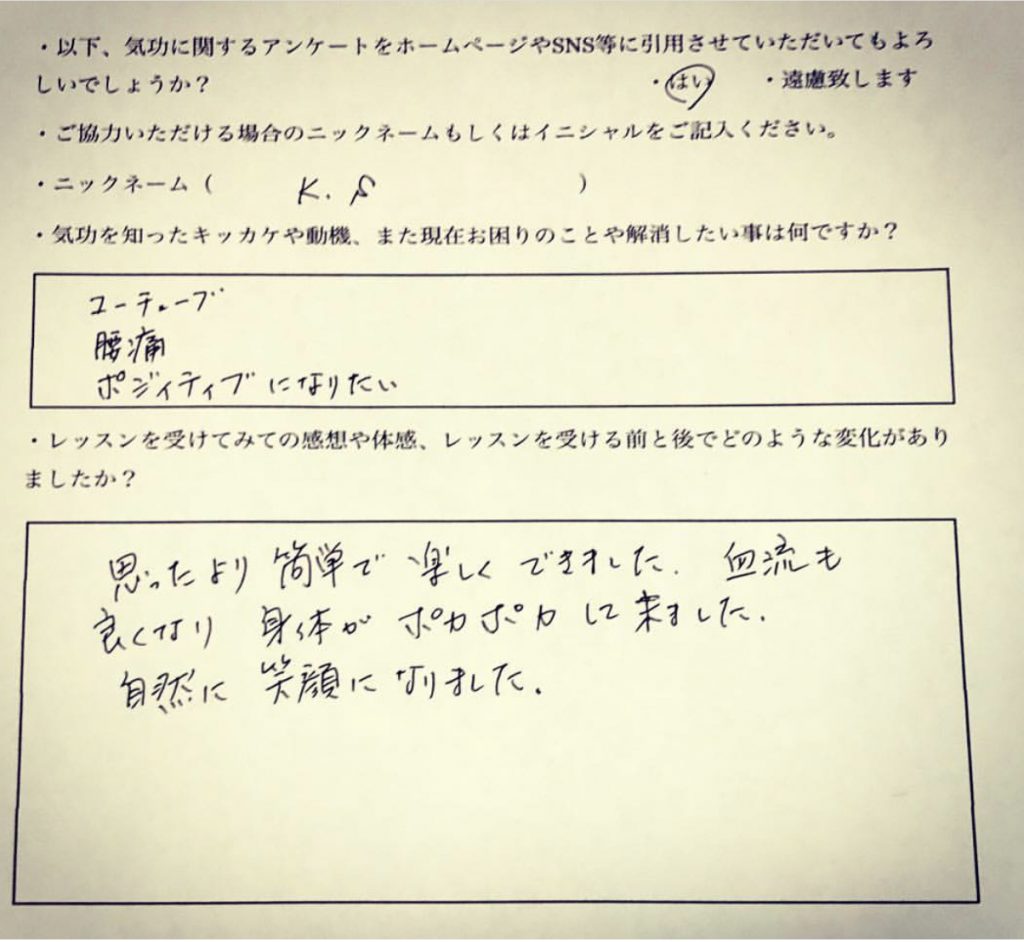 ・以下、気功に関するアンケートをホームページやSNS等に引用させていただいてもよろ
しいでしょうか？ ・はい ・遠慮致します
・ご協力いただける場合のニックネームもしくはイニシャルをご記入ください。
・ニックネーム（ K.S ）
・気功を知ったキッカケや動機、また現在お困りのことや解消したい事は何ですか？
ユーチューブ
腰痛
ポジィティブになりたい
・レッスンを受けてみての感想や体感、レッスンを受ける前と後でどのような変化があり
ましたか？
思ったより簡単で楽しくできました。血流も
良くなり身体がポカポカして来ました。
自然に笑顔になりました。